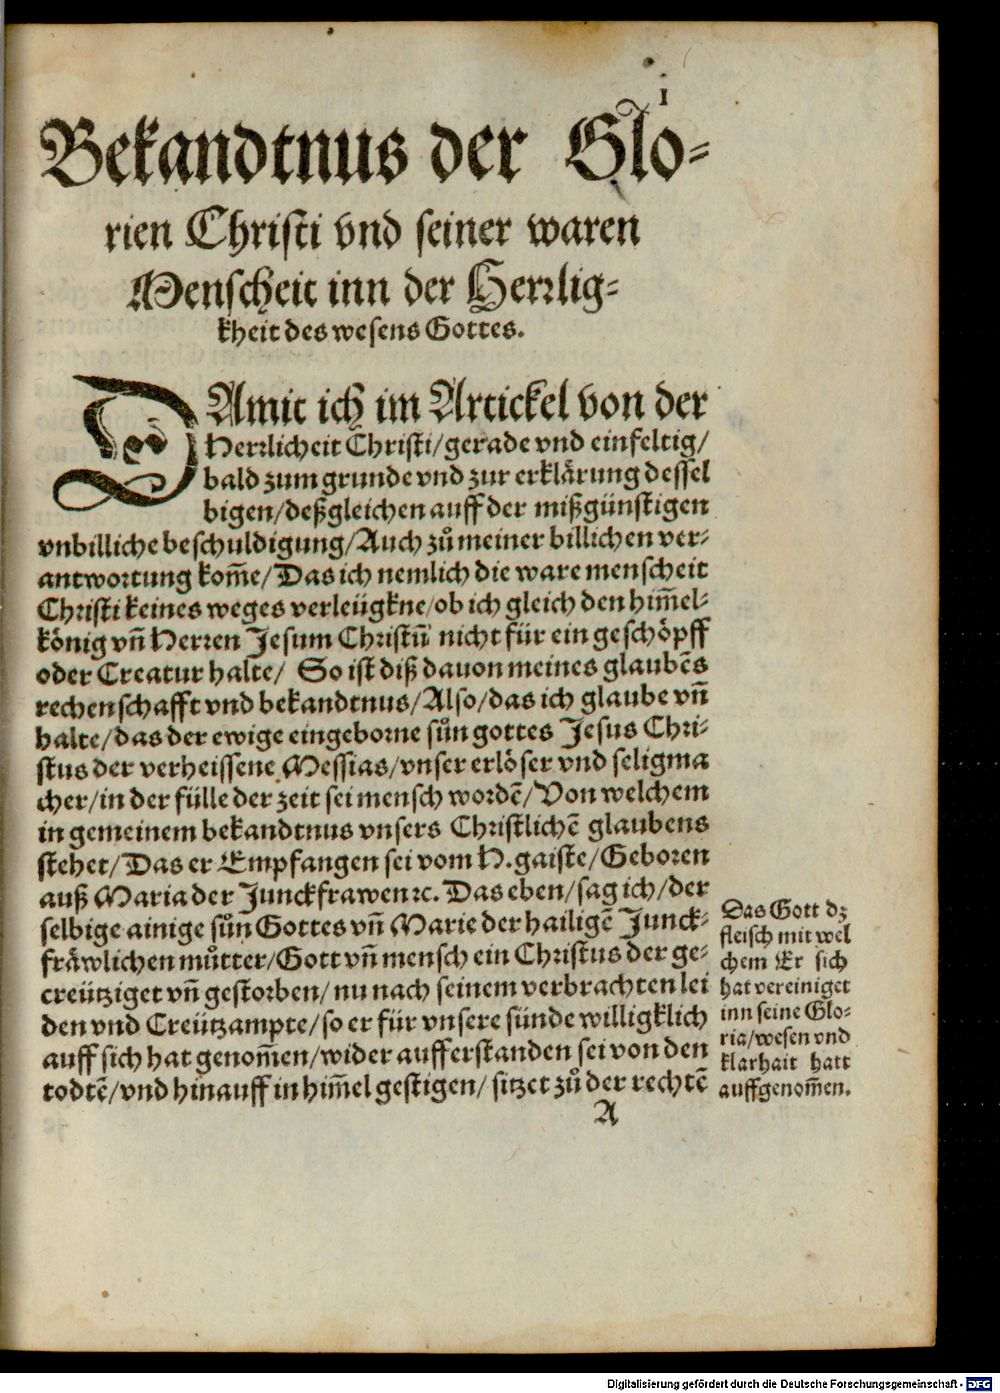 1
Bekandtnus der Glo-
rien Christi vnd seiner waren
Menscheit inn der Herrlig-
kheit des wesens Gottes.
DAmit ich im Artickel von der
Herrlicheit Christi/gerade vnd einfeltig/
bald zum grunde vnd zur erklärung dessel
bigen/deßgleichen auff der mißgünstigen
vnbilliche beschuldigung/Auch zů meiner billichen ver-
antwortung kom̃e/Das ich nemlich die ware menscheit
Christi keines weges verleügkne/ob ich gleich den him̃el-
könig vñ Herren Jesum Christũ nicht für ein geschöpff
oder Creatur halte/ So ist diß dauon meines glaubẽs
rechenschafft vnd bekandtnus/Also/das ich glaube vñ
halte/das der ewige eingeborne sůn gottes Jesus Chri-
stus der verheissene Messias/vnser erlöser vnd seligma
cher/in der fülle der zeit sei mensch wordẽ/Von welchem
in gemeinem bekandtnus vnsers Christlichẽ glaubens
stehet/Das er Empfangen sei vom H.gaiste/Geboren
auß Maria der Junckfrawen ꝛc. Das eben/sag ich/der
selbige ainige sůn Gottes vñ Marie der hailigẽ Junck-
fräwlichen můtter/Gott vñ mensch ein Christus der ge-
creütziget vñ gestorben/nu nach seinem verbrachten lei
den vnd Creützampte/so er für vnsere sünde willigklich
auff sich hat genom̃en/wider aufferstanden sei von den
todtẽ/vnd hinauff in him̃el gestigen/sitzet zů der rechtẽ
Das Gott dz
fleisch mit wel
chem Er sich
hat vereiniget
inn seine Glo-
ria/wesen vnd
klarhait hatt
auffgenom̃en.
A
Digitalisierung gefördert durch die Deutsche Forschungsgemeinschaft - DFG